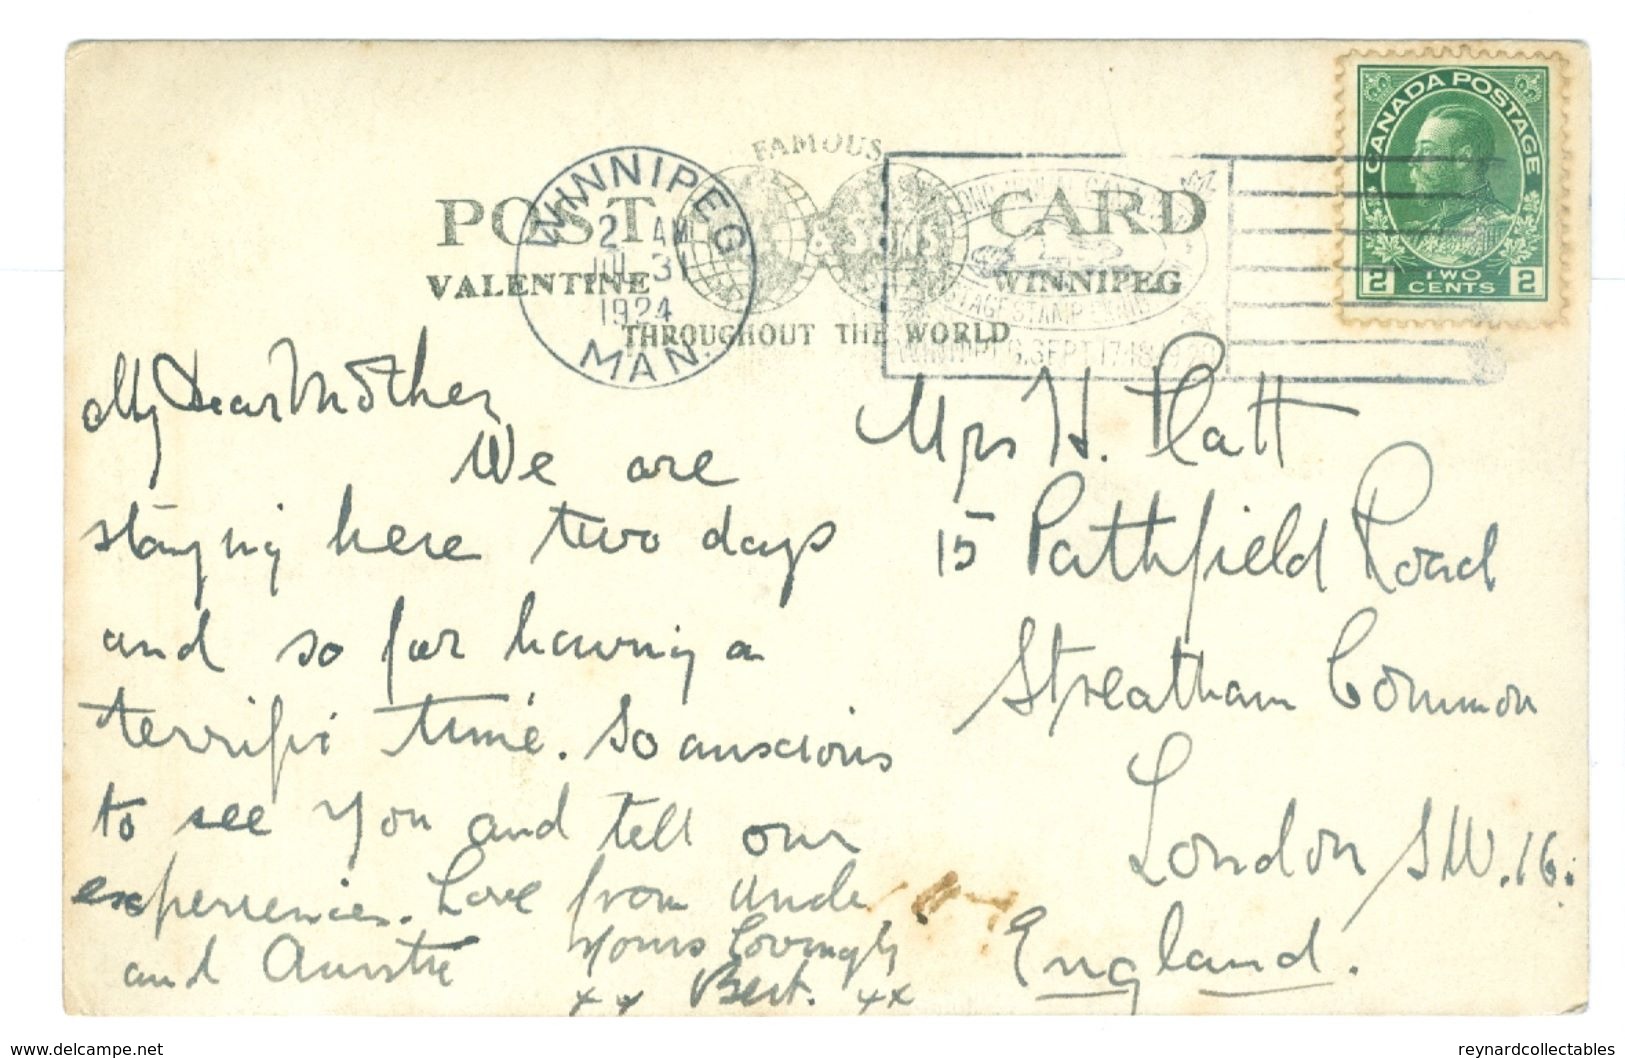 CANADA POSTAGE
2 TWO CENTS 2
FAMOUS
POST CARD
VALENTINE & SONS WINNIPEG
THROUGHOUT THE WORLD
WINNIPEG
2 AM
JUL 31
1924
MAN.
POSTAGE STAMP
WINNIPEG, SEPT. 17-18-19-20
My Dear Mother
We are
staying here two days
and so far having a
terrific time. So anscious
to see you and tell our
experiences. Love from Uncle
and Auntie
Yours lovingly
xx Bert. xx
Mrs H. Platt
15 Pathfield Road
Streatham Common
London S.W.16.
England.
www.delcampe.net
reynardcollectables